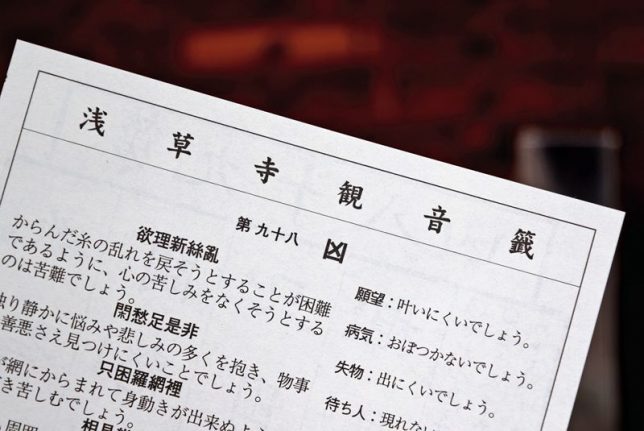 浅草寺観音籤
第九十八
凶
欲理新絲亂
からんだ糸の乱れを戻そうとすることが困難
であるように、心の苦しみをなくそうとする
のは苦難でしょう。
閑愁足是非
独り静かに悩みや悲しみの多くを抱き、物事
善悪さえ見つけにくいことでしょう。
只困羅網裡
が網にからまれて身動きが出来ぬよう
き苦しむでしょう。
願望：叶いにくいでしょう。
病気：おぼつかないでしょう。
失物：出にくいでしょう。
待ち人：現れない